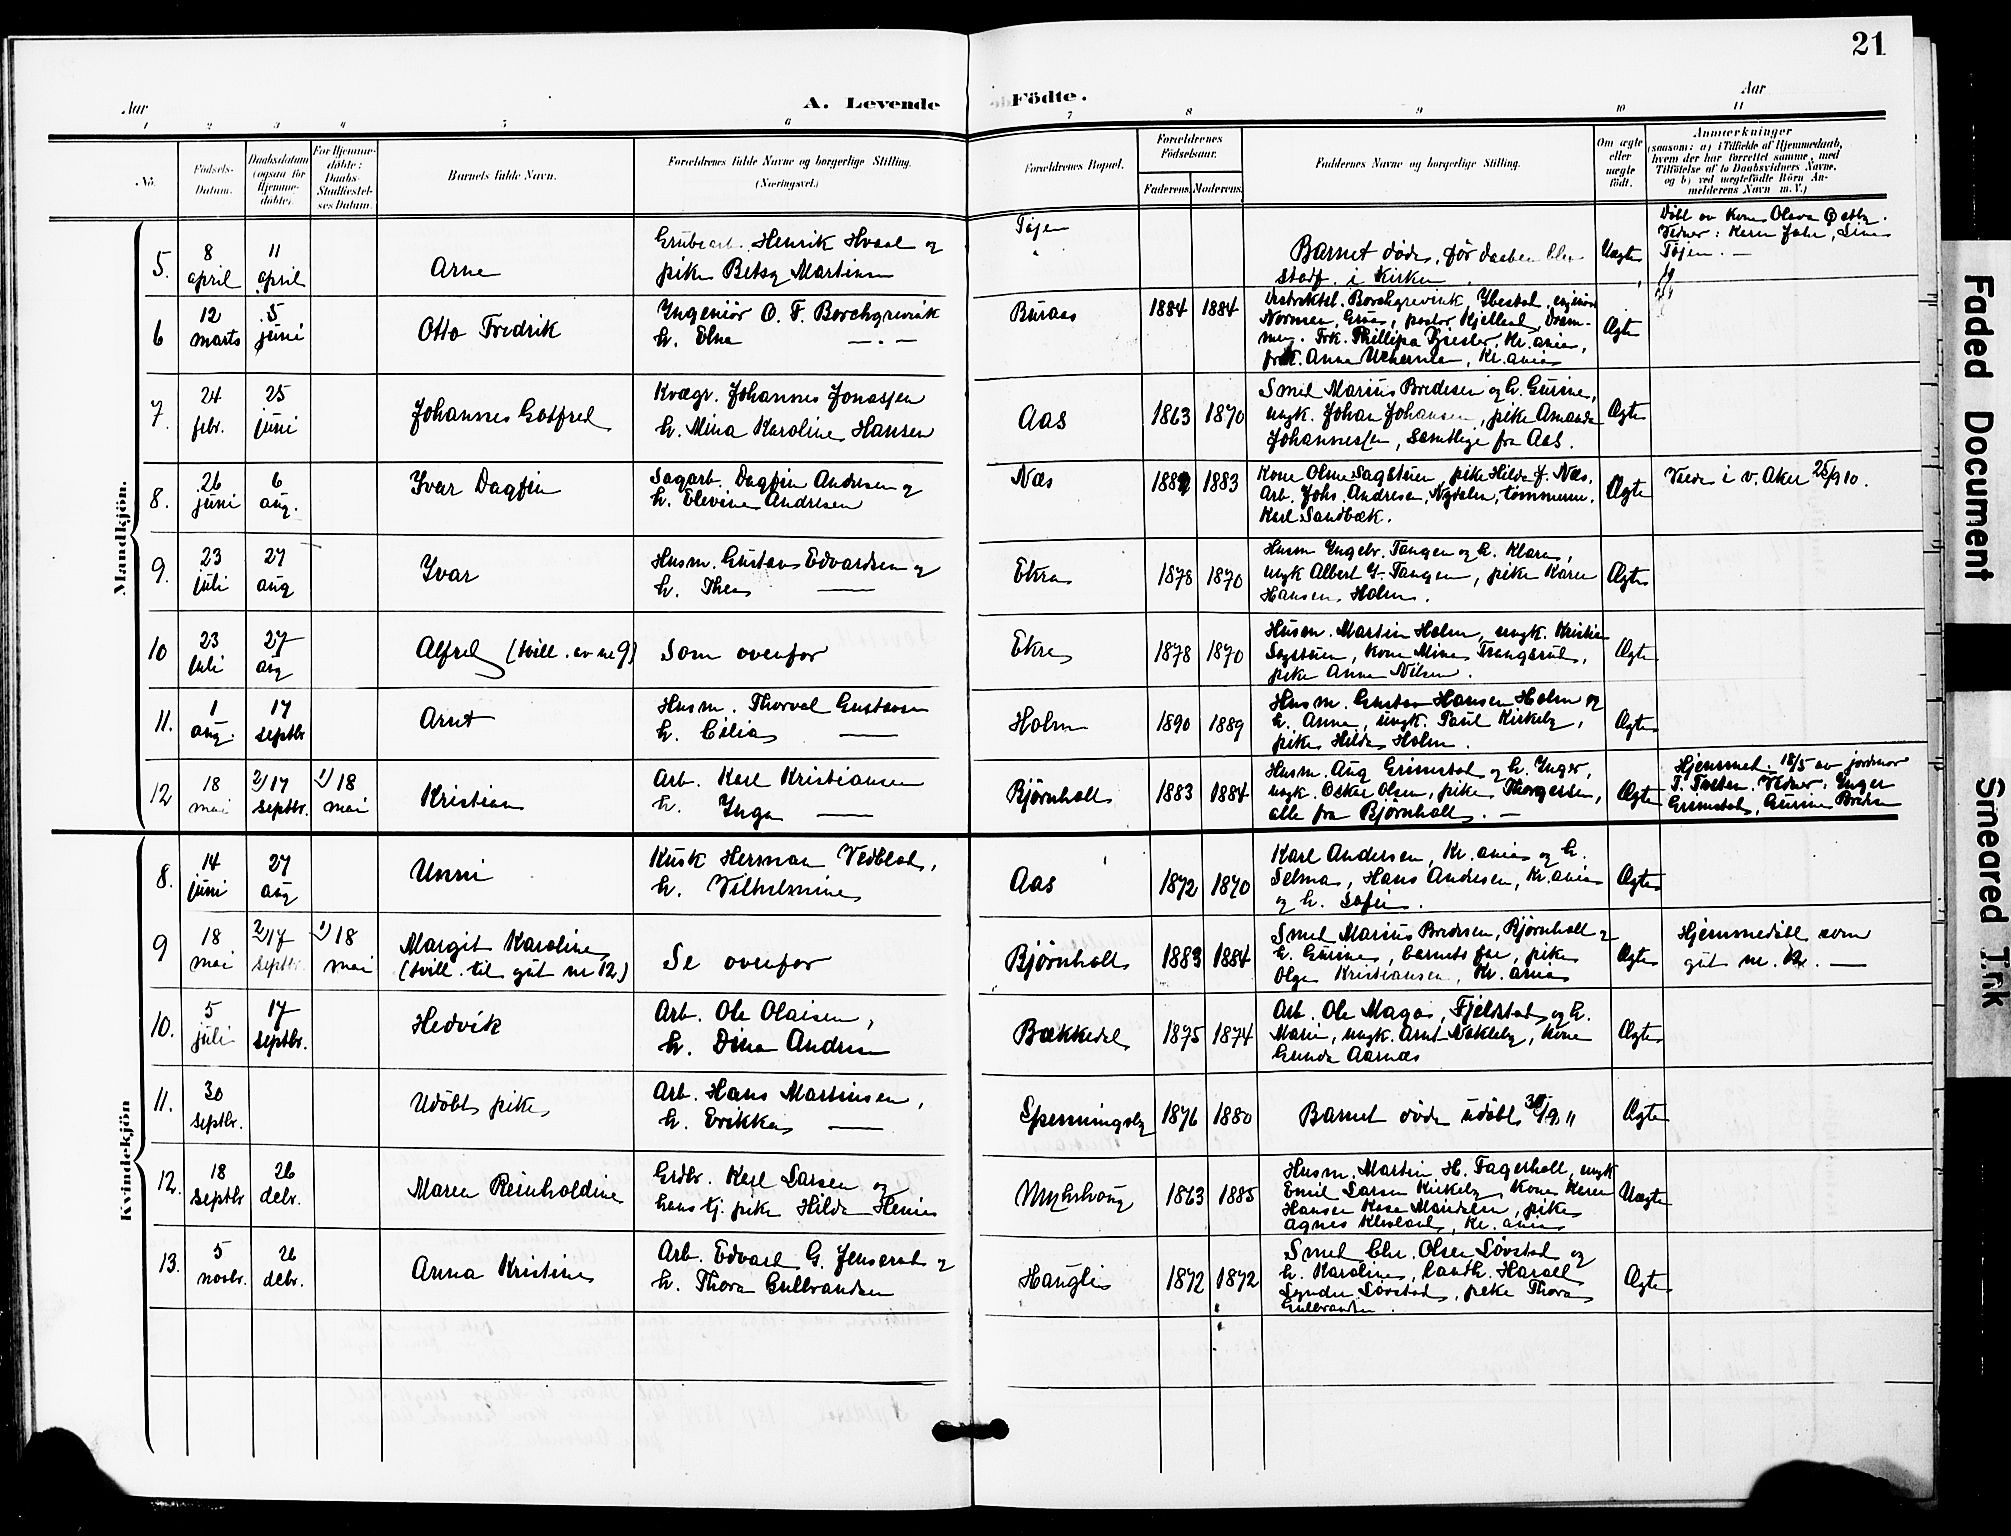 21
Aar
A. Levende Födte.
Aar
1 2 3 4 5 6 7 8 9 10 11
No.
Födsels-
Datum.
Daabsdatum
(ogsaa for
Hjemme-
döbte).
For Hjemme-
döbte:
Daabs-
Stadfæstel-
ses Datum.
Barnets fulde Navn.
Forældrenes fulde Navne og borgerlige Stilling.
(Næringsvei.)
Forældrenes Bopæl.
Forældrenes
Födselsaar.
Faderens. Moderens.
Faddernes Navne og borgerlige Stilling.
Om ægte
eller
uægte
födt.
Anmærkninger
(saasom: a) i Tilfælde af Hjemmedaab,
hvem der har forrettet samme, med
Tilföielse af to Daabsvidners Navne,
og b) ved uægtefödte Börn An-
melderens Navn m. V.)
Mandkjön.
5. 8 april 11 april Arne
Grubearb. Henrik Hvaal og
pike Betsy Martinsen
Töjen
Barnet döde, för daaben blev
stadf. i Kirken
Uægte
Döbt av Kone Olava
Vidner: Karen Joh.
Töjen. —
6 12 marts 5 juni Otto Fredrik
Ingeniör O. F. Borchgrevink
h. Elna — . —
Buraas 1884 1884
Distriktsl. Borchgrevink, Ibestad, ingeniör
Norman, Grua, pastor Kjelland, Dram-
men. Frk. Phillipa Kr.ania,
frk. Anna Kr.ania
Ægte
7. 24 febr. 25 juni Johannes Gotfred
Kvægr. Johannes Jonassen
h. Mina Karoline Hansen
Aas 1863 1870
Smed Marius Bredesen og h. Gurine,
ungk. Johan Johansen, pike Amanda
Johannessen, samtlige fra Aas.
Ægte
8. 26 juni 6 aug. Ivar Dagfin
Sagarb. Dagfin Andresen og
h. Elevine Andresen
Næs 1883
Kone Oline Sagstuen, pike Hilda J. Næs,
Arb. Johs. Andresen, Nydalen, tömmerm.
Karl Sandbæk.
Ægte
i v. Aker 25/9 10.
9. 23 juli 27 aug Ivar
Husm. Gustav Edvardsen og
h. Thea —
Ekra 1878 1870
Husm Ingebr. Tangen og h. Klara,
ungk Albert G. Tangen, pike Karen
Hansen Holm.
Ægte
10 23 juli 27 aug Alfred (tvill. av nr 9)
Som ovenfor
Ekra 1878 1870
Husm. Martin Holm, ungk. Kristian
Sagstuen, Kone Mina Trangsrud,
pike Anna Nilsen.
Ægte
11. 1 aug. 17 septbr Arnt
Husm. Thorval Gustavsen
h. Cilia —
Holm 1890 1889
Husm. Gustav Hansen Holm og
h. Anna, ungk. Paul Kirkeby,
pike Hilda Holm.
Ægte
12 18 mai 2/17 septbr. 1/18 mai Kristian
Arb. Karl Kristiansen
h. Inga —
Björnholt 1883 1884
Husm. Aug Grimstad og h. Inger,
ungk. Oskar Olsen, pike Thorgersen,
alle fra Björnholt. —
Ægte
Hjemmed. 18/5 av jordmor
T. Vidner: Inger
Grimstad, Gurine Bredesen
Kvindekjön
8. 14 juni 27 aug Unni
Kusk Herman Vedblad,
h. Vilhelmine
Aas 1872 1870
Karl Andersen, Kr.ania og h.
Selma, Hans Andresen, Kr.ania
og h. Sofie.
Ægte
9 18 mai 2/17 septbr. 1/18 mai Margit Karoline
(tvill. til gut nr 12.)
Se ovenfor
Björnholt 1883 1884
Smed Marius Bredesen, Björnholt og
h. Gurine, barnets far, pike
Olga Kristiansen, Kr.ania
Ægte
Hjemmedöbt som
gut nr. 12. —
10. 5 juli 17 septbr. Hedvik
Arb. Ole Olaisen,
h. Dina Andrea
Bækkedal 1875 1874
Arb. Ole Fjeldstad og h.
Marie, ungk. Arnt Nökleby, Kone
Gunda Aarnæs
Ægte
11. 30 septbr. Udöbt pike
Arb. Hans Martinsen,
h. Erikka —
Spenningsby 1876 1880
Barnet döde udöbt 30/9 11
Ægte
12. 18 septbr 26 debr. Maren Reinholdine
Grdbr. Karl Larsen og
hans tj. pike Hilda
1863 1885
Husm. Martin H. Fagerholt, ungk
Emil Larsen Kirkeby, Kone Karen
Hansen pike
Agnes Kr.ania
Uægte
13. 5 novbr. 26 debr. Anna Kristine
Arb. Edvard G. Jensrud og
h. Thora Gulbrandsen
Hauglie 1872 1872
Smed Chr. Olsen Lövstad og
h. Karoline, landh. Harald
Lövstad, pike Thora
Gulbrandsen.
Ægte
Faded Document
Smeared Trk